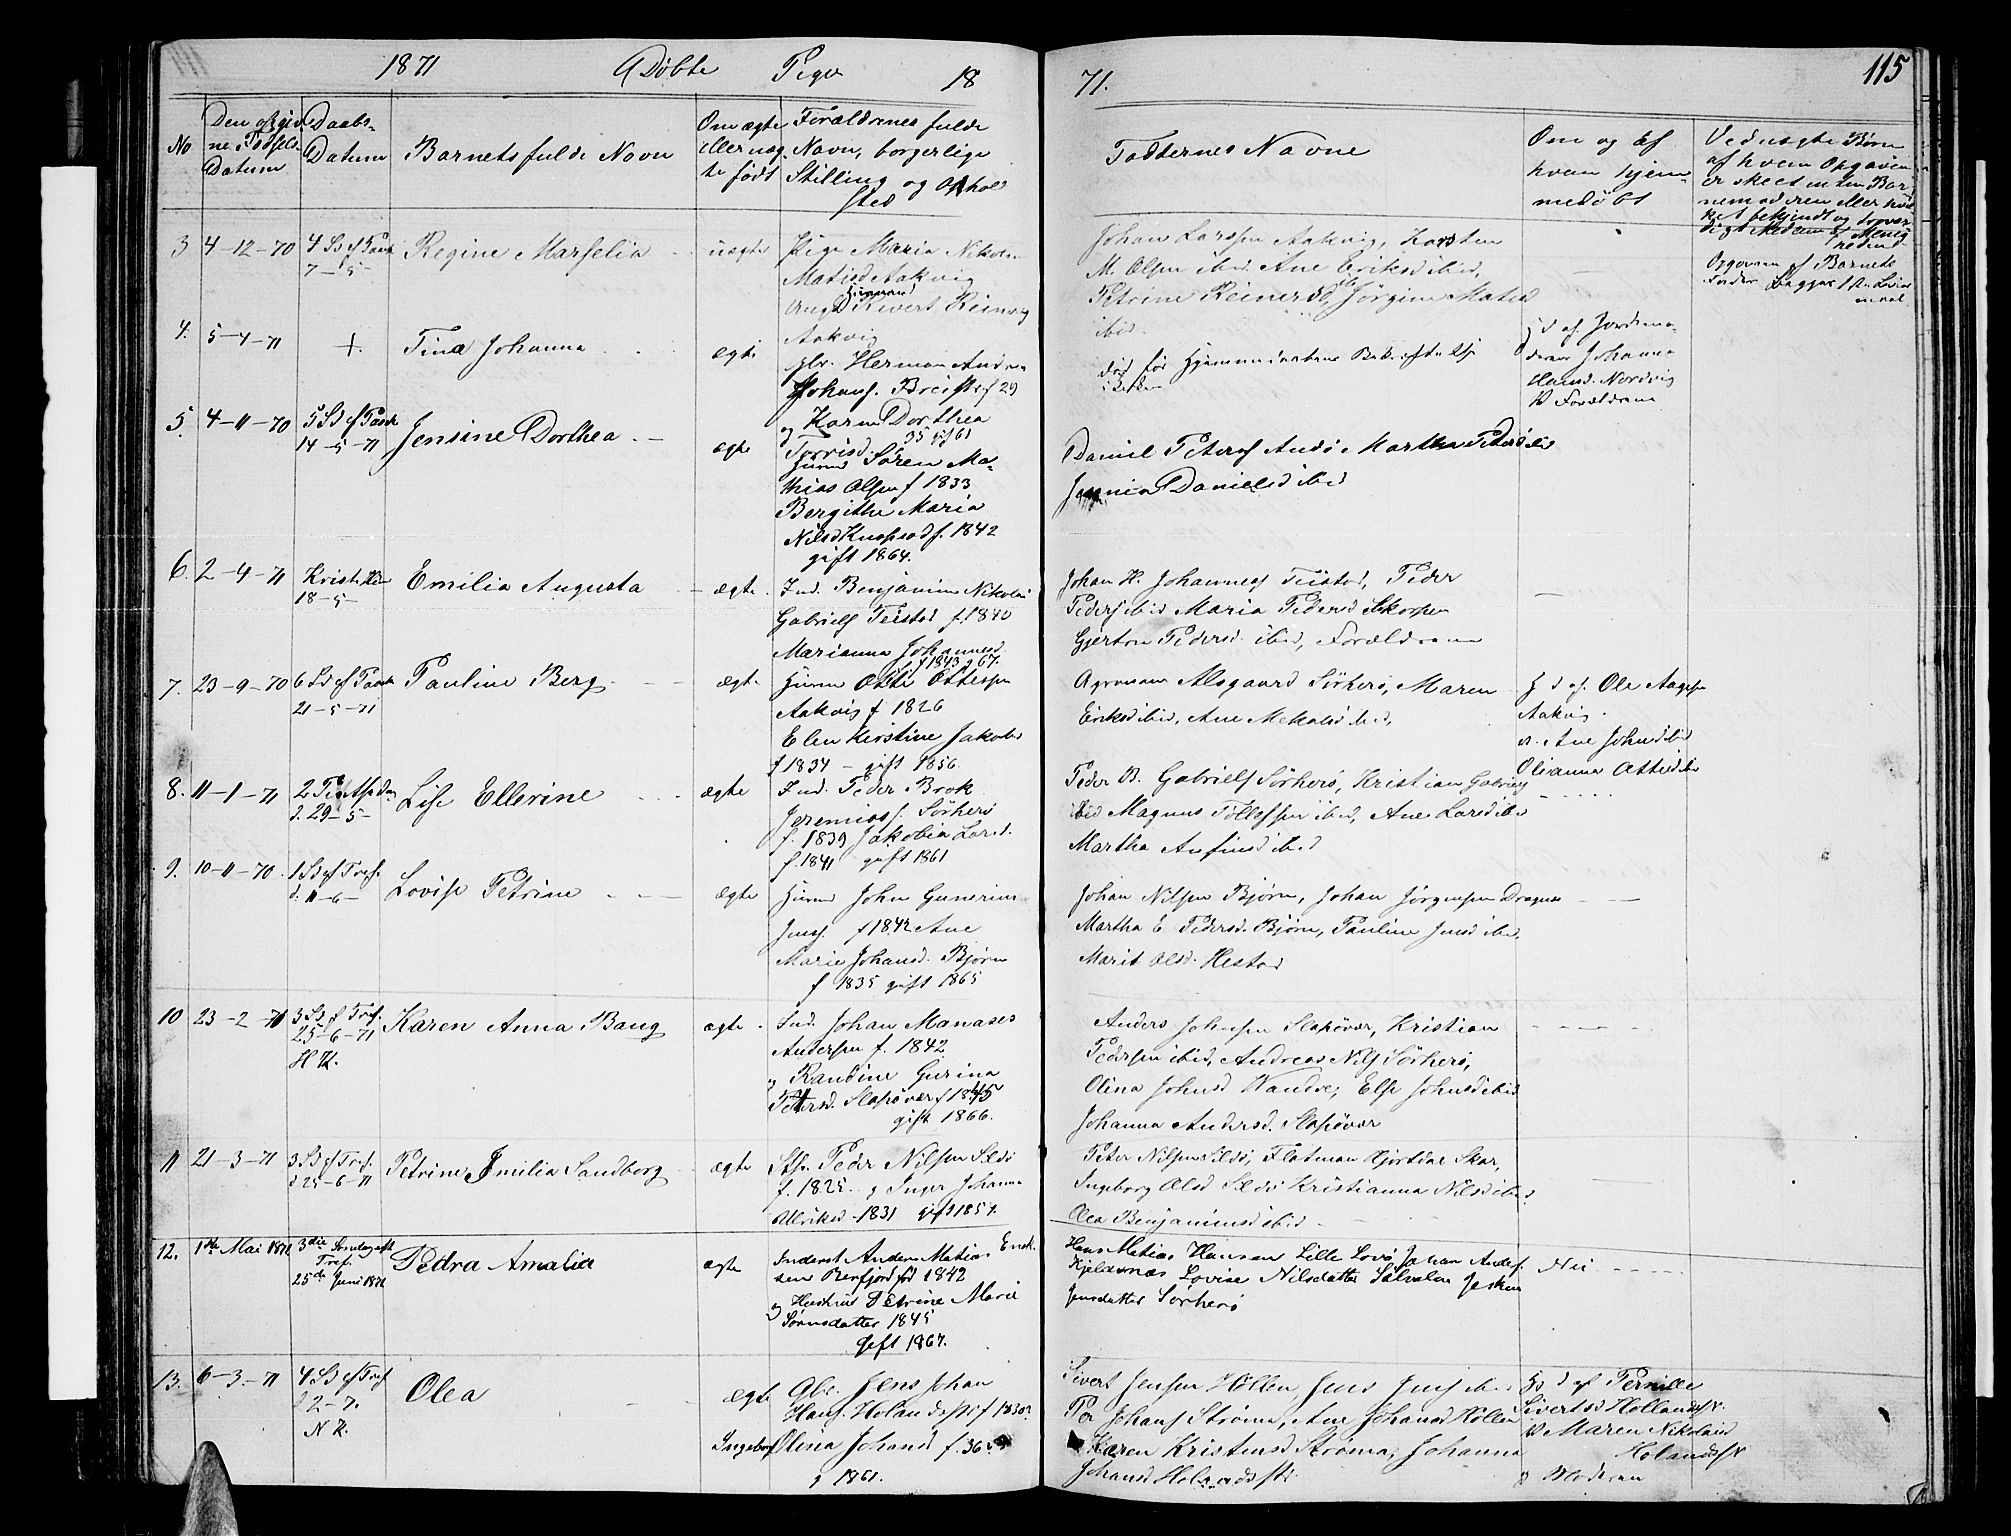 1871 Døbte Piger 18
71. 115
No
Den opgivne Fødsels Datum
Daabs-Datum
Barnets fulde Navn
Om ægte eller uægte født
Forældrenes fulde Navn, borgerlige Stilling og Opholdsted
Faddernes Navne
Om og af hvem hjemmedøbt
Ved uægte Børn af hvem Opgaven er skeet
3 4-12-70 4 Sd ef Paask 7-5- Regine Marselia uægte
Pige Maria Nikolai
Matisd Aakvig
Ungk Sivert Reinerts
Aakvig
Johan Larssen Aakvig, Karsten
M. Olsen ibid. Ane Eriksd ibid,
Petrine Reinersd, Jørgine Matisd
ibid.
Opgaven af Barnets
Fader
4. 5-4-71 + Tina Johanna ægte
Gbr. Herman Andreas
Johans. Breisten f 29
og Karen Dorthea
Torrisd. 35 gift 61
død før Hjemmedaabens Bekræftelse
i Kirken
Hd af Jordemoderen Johanna
Hansd. Nordvig
V Forældrene
5. 4-11-70 5 Sd ef Paask 14-5-71 Jensine Dorthea ægte
Husmd Søren Mathias Olsen f 1833
Bergithe Maria
Nilsd Knapsad f. 1842
gift 1864.
Daniel Peters Andø, Martha Petersd ibid
Danielsd ibid
6. 2-4-71 Krist. Him 18-5- Emilia Augusta ægte
Ind. Benjamin Nikolai
Gabriels Teistad f. 1840
Marianna Johannesd.
f 1843 g 67.
Johan H. Johannes Teistad, Peder
Peders ibid Maria Pedersd Skorpen
Gjertru Pedersd. ibid, Forældrene
7. 23-9-70 6 Sd ef Paask 21-5-71 Pauline Berg ægte
Husm Otte Ottesen
Aakvig f 1826
Elen Kirstine Jakobsd
f 1834 - gift 1856.
Agronom Alsgaard Sørherø, Maren
Eriksd ibid, Ane Mekalsd ibid,
H d af. Ole Aagesen
Aakvig.
v. Ane Johnsd ibid
Olianna Ottesd ibid
8. 11-1-71 2 Pintsedag d. 29-5- Lise Ellerine ægte
Ind. Peder Brok
Jeremiass. Sørherø
f. 1839 Jakobia Larsd.
f. 1841 gift 1861
Peder B. Gabriels Sørherø, Kristian Gabriels
ibid Magnus Tollefsen ibid, Ane Larsd ibid
Martha Anfinsd ibid
9. 10-11-70 1 Sd ef Tref. d. 11-6- Lovise Petrine ægte
Husmd John Gunerius
Jenss. f 1842 Ane
Marie Johansd. Bjørn
f 1835 gift 1865
Johan Nilsen Bjørn, Johan Jørgensen Dragnes
Martha E Pedersd. Bjørn, Pauline Jensd ibid.
Marit Olsd. Hestad
10 23-2-71 3 Sd ef Tref. 25-6-71 H K. Karen Anna Bang ægte
Ind. Johan Manases
Andersen f. 1842
og Randine Gurina
Petersd. Slapøvær f 1845
gift 1866.
Anders Johnsen Slapøvær, Kristian
Pedersen ibid, Andreas Nils Sørherø,
Olina Johnsd Vandve, Else Johnsd ibid
Johanna Andersd. Slapøvær
11 21-3-71 3 Sd ef Tref. d 25-6-71 Petrine Emilia Sandborg ægte
Stsr. Peder Nilsen Sildø
f. 1825. og Inger Johanna
Ulriksd - 1831 gift 1857.
Peter Nilsen Sildø, Flatman Hjortdal Skar,
Ingeborg Olsd Sildø Kristianna Nilsd ibid
Olea Benjaminsd ibid
12. 1ste Mai 1871 3die Søndag eft Tref. 25de Juni 1871 Pedra Amalia ægte
Inderst Anders Matias Enok-
sen Berfjord fød 1842
og Hustrue Petrine Marie
Sørensdatter 1845
Gift 1867.
Hans Matias Hansen Lille Lovø, Johan Anders.
Kjeldernæs Lovise Nilsdatter
Jensdatter Sørherø
Nei
13. 6-3-71 4 Sd ef Tref d 2-7. N K. Olea ægte
Gbr. Jens Johan
Hans. Holandsstr f 1830
Ingeborg Olina Johansd f. 36
g 1861.
Sivert Jensen Høllen, Jens Jens ibid
Per Johans Strøma, Ane Johansd Høllen
Karen Kristensd Strøma, Johanna
Johansd Holandsstr.
Hd af Pernille
Sivertsd Hollandsstr.
V Maren Nikolaisd
Holandsstr
og Moderen